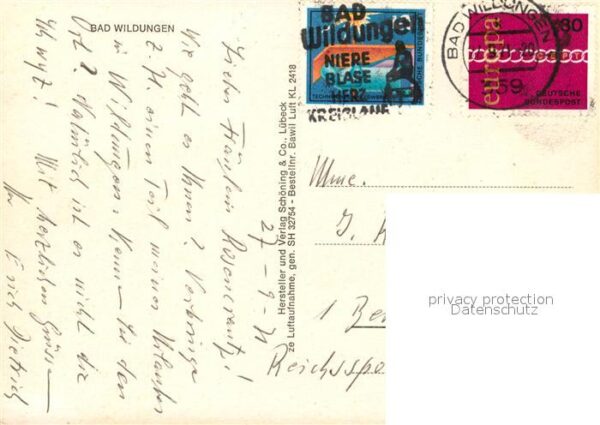 BAD WILDUNGEN
27-9-71
Liebes Fräulein Rosencrantz!
Wie geht es Ihnen? Verbringe
z. Zt. einen Teil meines Urlaubes
in Wildungen. Kennen Sie den
Ort? Natürlich ist es nicht die
Mit herzlichen Grüssen
Ihr
Dietrich
Hersteller und Verlag Schöning & Co., Lübeck
ze Luftaufnahme, gen. SH 32754 - Bestellnr. Bawil Luft KL 2418
BAD
Wildungen
NIERE
BLASE
HERZ
KREISLAUF
BAD WILDUNGEN
europa
30
DEUTSCHE
BUNDESPOST
Mme.
J.
1
privacy protection
Datenschutz